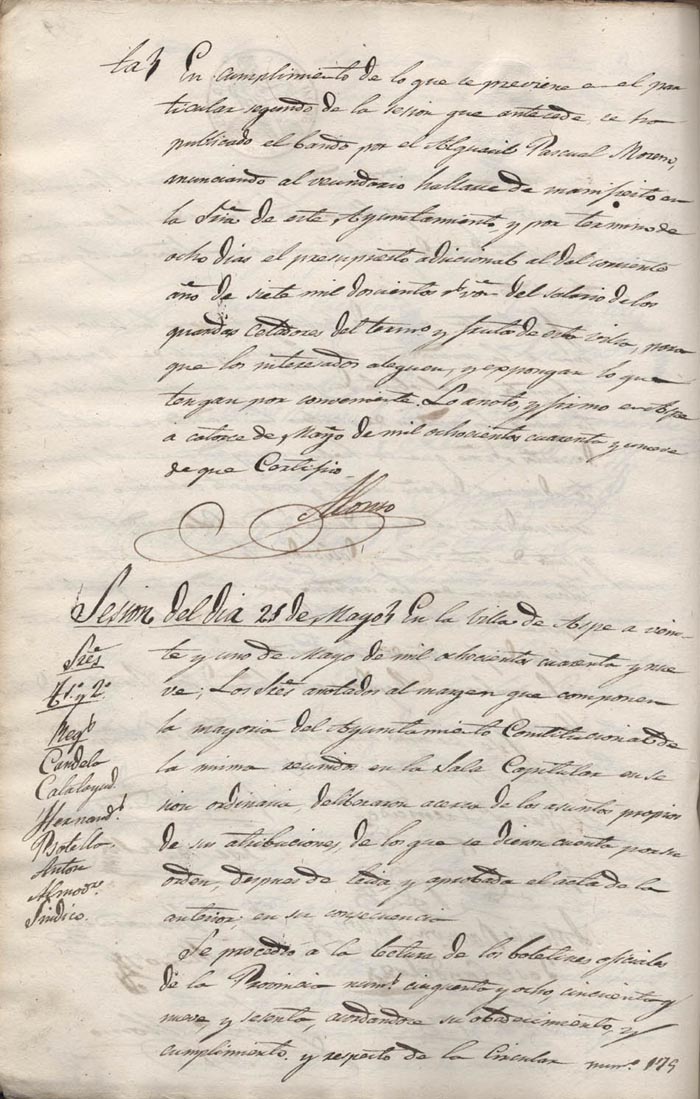 ta
En cumplimiento de lo que se previene en el par
ticular segundo de la sesion que antecede, se ha
publicado el bando por el Alguacil Pascual Moreno,
anunciando al vecindario hallarse de manifiesto en
la Sria de este Ayuntamiento y por termino de
ocho dias el presupuesto adicional al del corriente
año de siete mil doscientos rs von del salario de los
guardas celadores del termo y fruto de esta villa, para
que los interesados aleguen, y expongan lo que
tengan por conveniente. Lo anoto, y firmo en Aspe
á catorce de Mayo de mil ochocientos cuarenta y nueve
de que Certifico
Alonso
Sesion del dia 21 de Mayo En la Villa de Aspe a vein
te y uno de Mayo de mil ochocientos cuarenta y nue
ve; Los Sres anotados al margen que componen
la mayoria del Ayuntamiento Constitucional de
la misma reunidos en la Sala Capitular en se
sion ordinaria, deliberaron acerca de los asuntos propios
de sus atribuciones, de los que se dieron cuenta por su
orden, despues de leida y aprobada el acta de la
anterior, en su consecuencia
Sres
1º y 2º
Regs
Candela
Calatayud
Hernands
Botella
Anton
Almodr
Sindico.
Se procedió á la lectura de los boletines oficiales
de la Provincia nums cinquenta y ocho, cincuenta y
nueve, y sesenta, acordandose su obedecimiento, y
cumplimiento. y respecto de la Circular numo 175